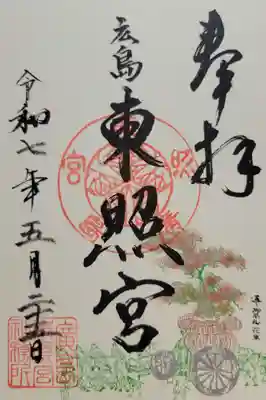 奉拝
広島
東照宮
令和七年五月二十五日